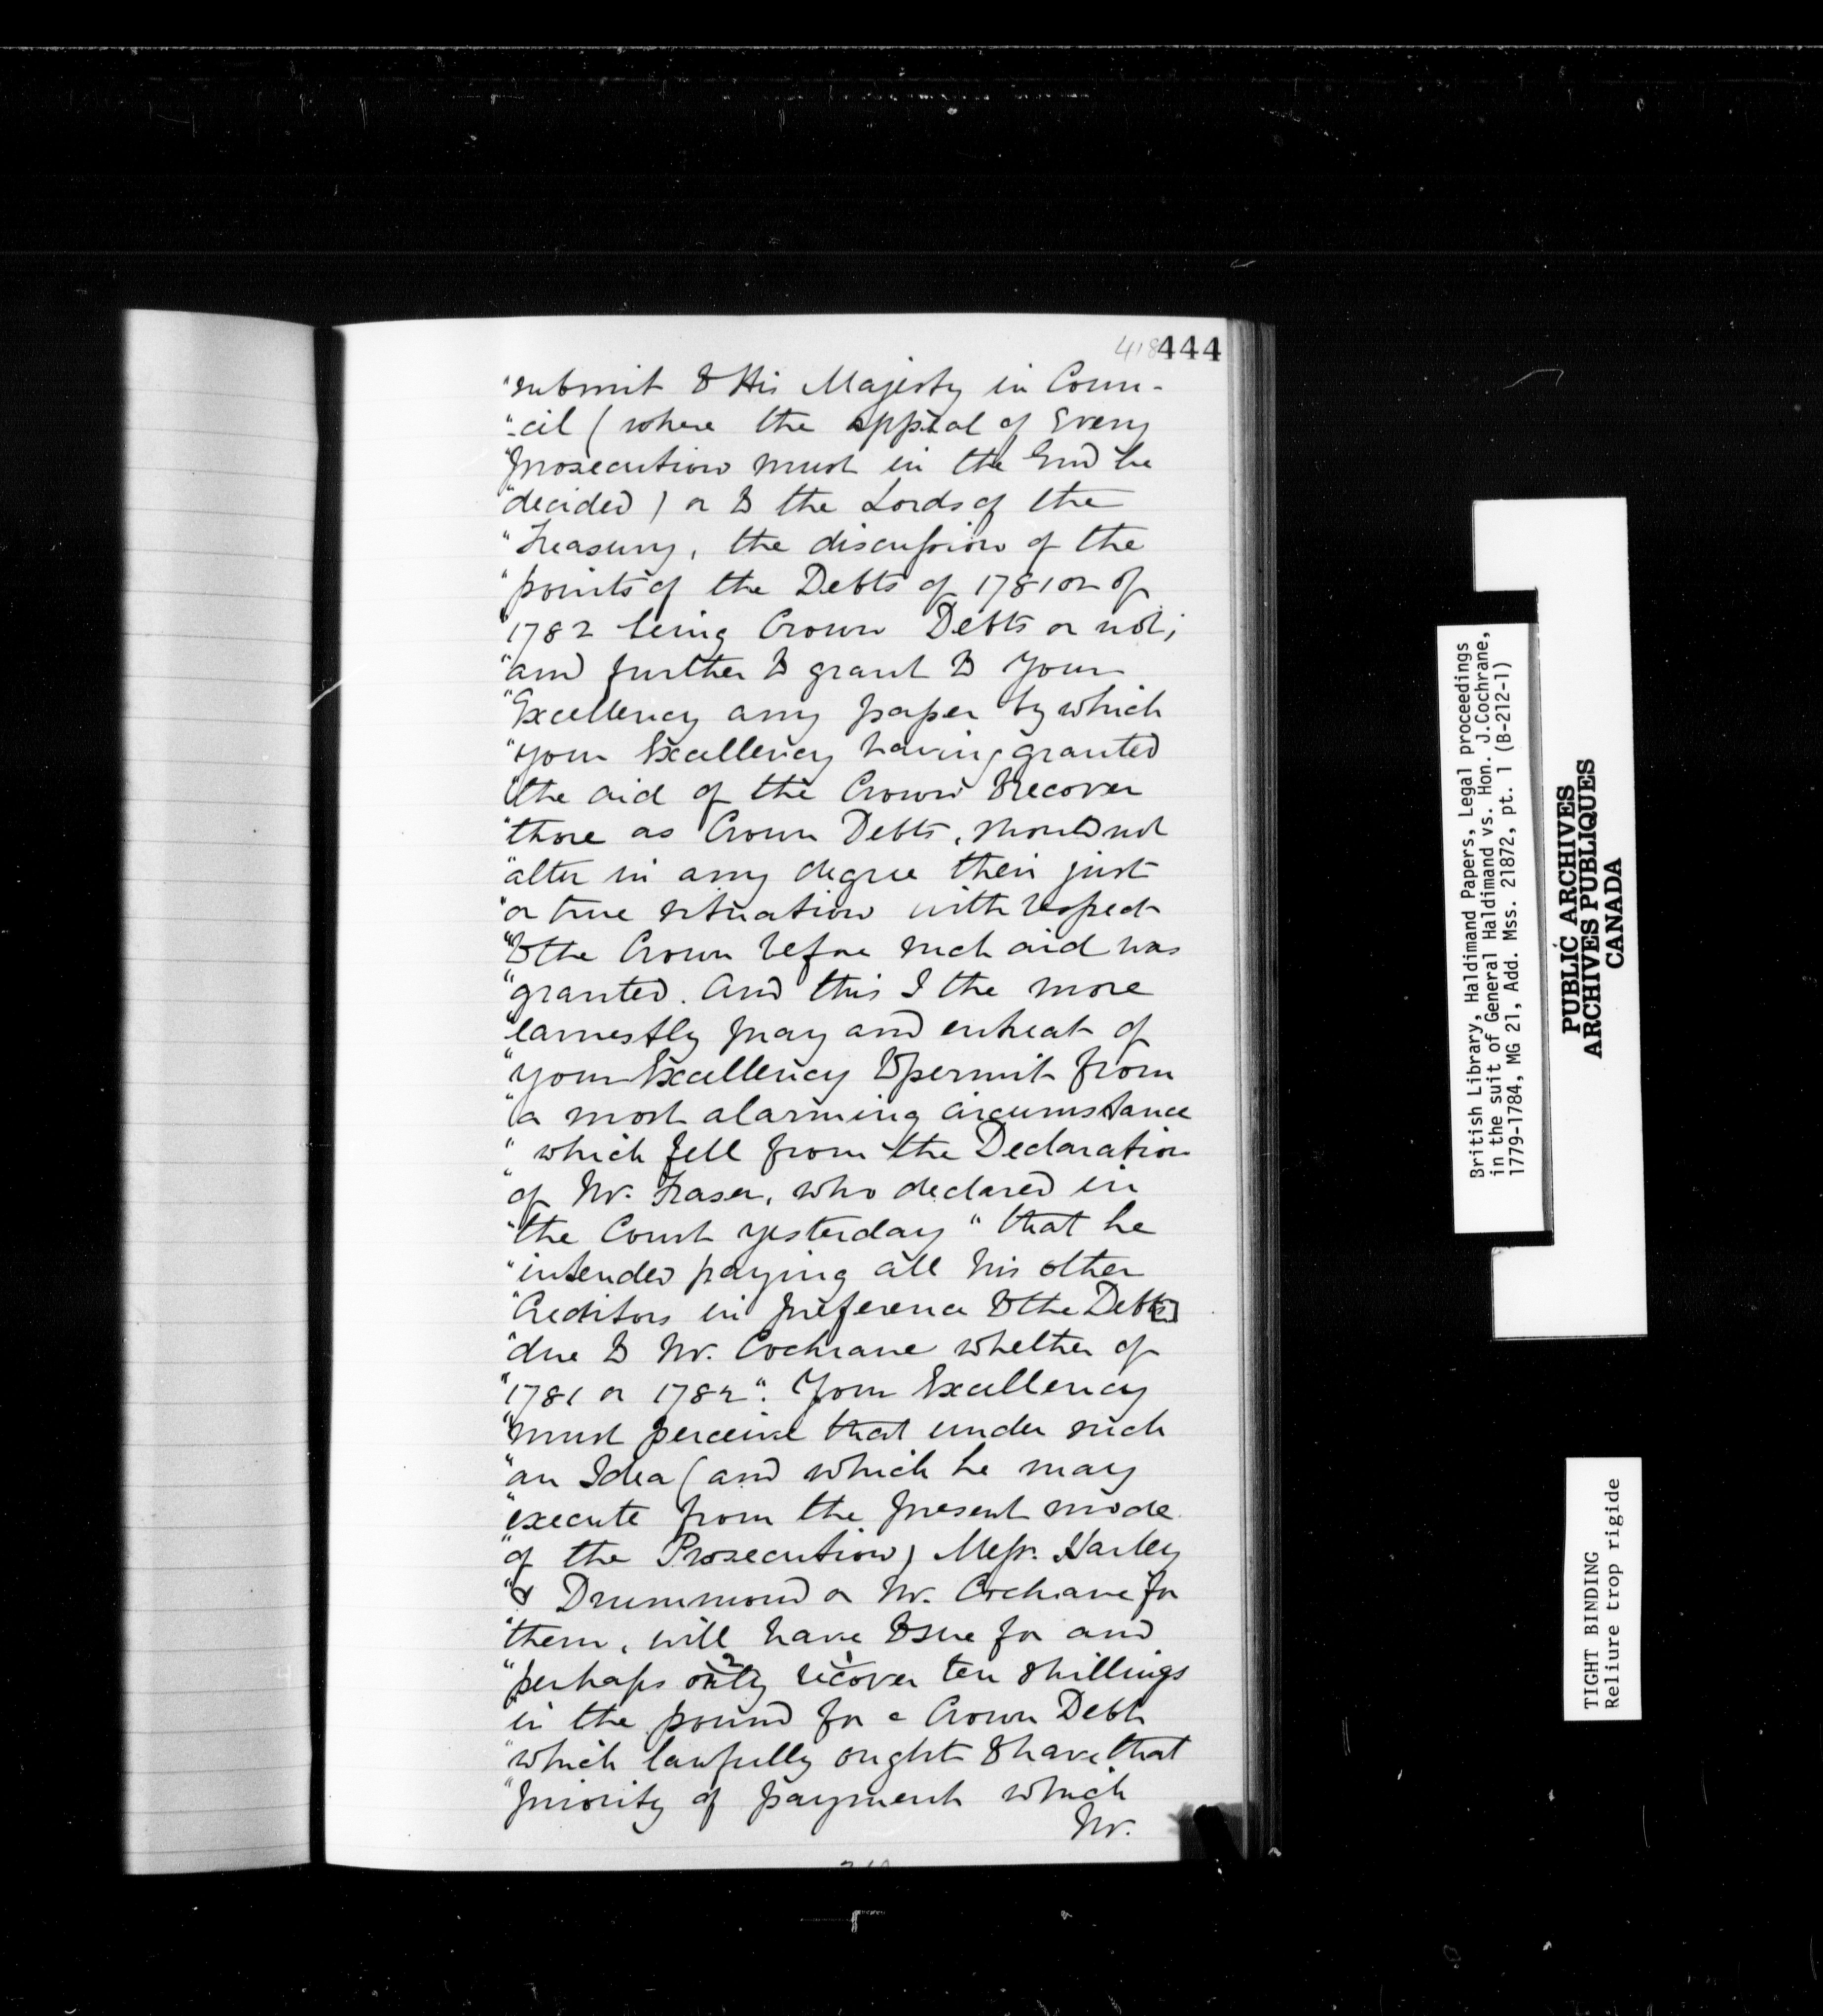 418 444
"submit to His Majesty in Coun-
"-cil (where the appeal of Every
"prosecution must in the End be
"decided) or to the Lords of the
"Treasury, the discussion of the
"points of the Debts of 1781 or of
"1782 being Crown Debts or not;
"and further to grant to Your
"Excellency any paper by which
"your Excellency having granted
"the aid of the Crown to recover
"those as Crown Debts, should not
"alter in any degree their just
"or true situation with respect
"to the Crown before such aid was
"granted. And this I the more
"earnestly pray and entreat of
"your Excellency to permit from
"a most alarming circumstance
"which fell from the Declaration
"of Mr. Fraser, who declared in
"the Court yesterday "that he
"intended paying all his other
"Creditors in preference to the Debt[s]
"due to Mr. Cochrane whether of
"1781 or 1782". Your Excellency
"must perceive that under such
"an Idea (and which he may
"execute from the present mode
"of the Prosecution) Messrs. Harley
"& Drummond or Mr. Cochrane for
"them, will have to sue for and
"perhaps only 2 recover 1 ten shillings
"in the pound for a Crown Debt
"which lawfully ought to have that
"priority of payment which
Mr.
British Library, Haldimand Papers, Legal proceedings
in the suit of General Haldimand vs. Hon. J.Cochrane,
1779-1784, MG 21, Add. Mss. 21872, pt. 1 (B-212-1)
PUBLIC ARCHIVES
ARCHIVES PUBLIQUES
CANADA
TIGHT BINDING
Reliure trop rigide